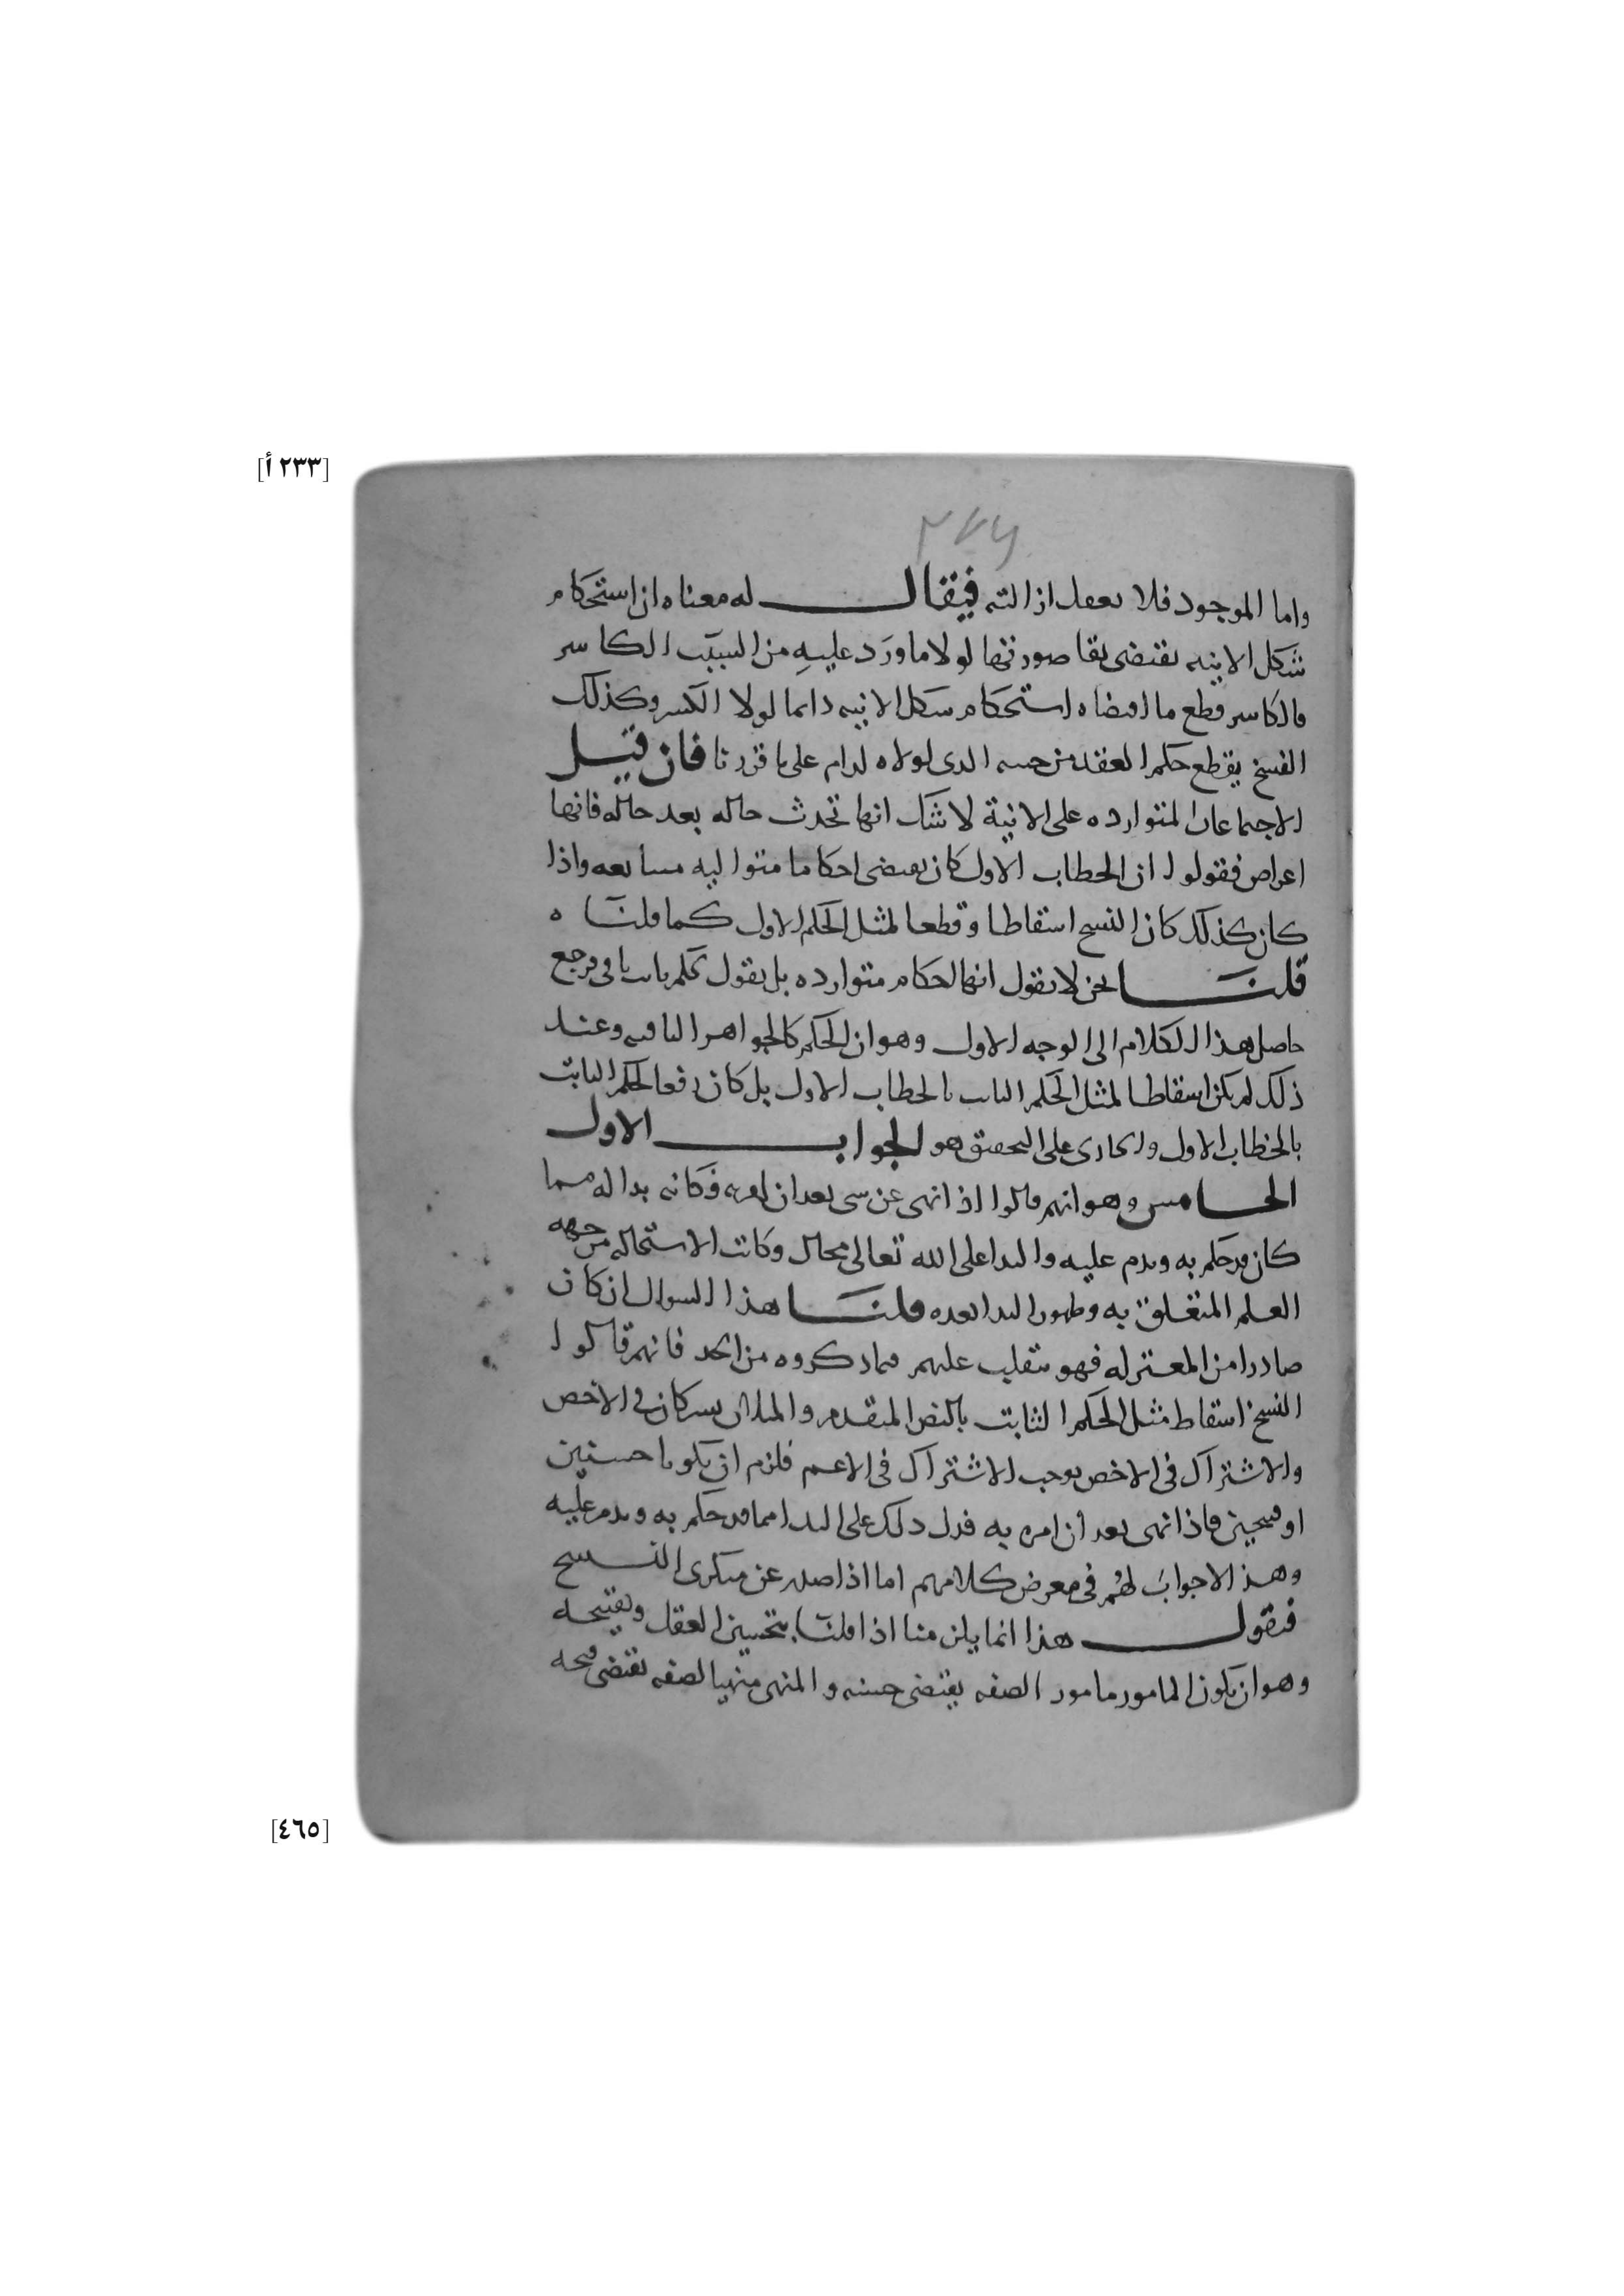 [٢٣٣ أ]
واما الموجود فلا يعقل ازالته فيقال له معناه ان استحكام
شكل الانيه يقتضى بقا صورتها لولا ما ورد عليه من السبب الكاسر
فالكاسر قطع ما اقتضاه استحكام شكل الانيه دايما لولا الكسر وكذلك
الفسخ يقطع حكم العقد من حينه الذى لولاه لدام على ما قررنا فان قيل
الاجتماعات المتوارده على الانية لا شك انها تحدث حاله بعد حاله فانها
اعراض فقولوا ان الخطاب الاول كان يقتضى احكاما متواليه متتابعه واذا
كان كذلك كان النسخ اسقاطا وقطعا لمثل الحكم الاول كما قلناه
قلنا نحن لا نقول انها احكام متوارده بل نقول حكم ثابت باق فرجع
حاصل هذا الكلام الى الوجه الاول وهو ان الحكم كالجواهر الباقيه وعند
ذلك لم يكن اسقاطا لمثل الحكم الثابت بالخطاب الاول بل كان رفعا لحكم الثابت
بالخطاب الاول والجارى على التحقيق هو الجواب الاول
الخامس وهو انهم قالوا اذا نهى عن شى بعد ان امر به فكانه بدا له مما
كان قد حكم به وندم عليه والبدا على الله تعالى محال وكانت الاستحاله من جهه
العلم المتعلق به وظهور البدا بعده قلنا هذا السوال ان كان
صادرا من المعتزله فهو منقلب عليهم فيما ذكروه من الحد فانهم قالوا
النسخ اسقاط مثل الحكم الثابت بالنص المتقدم والمثلان يشتركان فى الاخص
والاشتراك فى الاخص يوجب الاشتراك فى الاعم فلزم ان يكونا حسنين
او قبيحين فاذا نهى بعد ان امر به فدل ذلك على البدا مما قد حكم به وندم عليه
وهذا الاجواب لهم فى معرض كلامهم اما اذا صدر عن منكرى النسخ
فنقول هذا انما يلزمنا اذا قلنا بتحسين العقل وتقبيحه
وهو ان يكون المامور مامورا لصفه يقتضى حسنه والمنهى منهيا لصفه تقتضى قبحه
[٤٦٥]